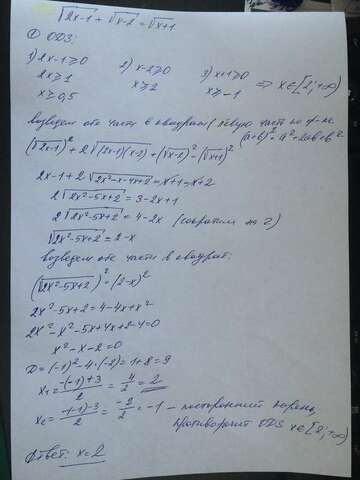 √2x-1 + √x-2 = √x+1
① ОДЗ:
1) 2x-1≥0 2) x-2≥0 3) x+1≥0 ⇒ x∈[2;+∞)
2x≥1 x≥2 x≥-1
x≥0,5
возведем обе части в квадрат (левую часть по ф-ле
(a+b)²=a²+2ab+b²
(√2x-1)²+2√(2x-1)(x-2)+(√x-2)²=(√x+1)²
2x-1+2√2x²-x-4x+2=x+1-x+2
2√2x²-5x+2=3-2x+1
2√2x²-5x+2=4-2x (сократим на 2)
√2x²-5x+2=2-x
возведем обе части в квадрат:
(√2x²-5x+2)²=(2-x)²
2x²-5x+2=4-4x+x²
2x²-x²-5x+4x+2-4=0
x²-x-2=0
D=(-1)²-4·(-2)=1+8=9
x₁=-(-1)+3/2=4/2=2
x₂=-(-1)-3/2=-2/2=-1 - посторонний корень,
противоречит ОДЗ x∈[2;+∞)
Ответ: x=2